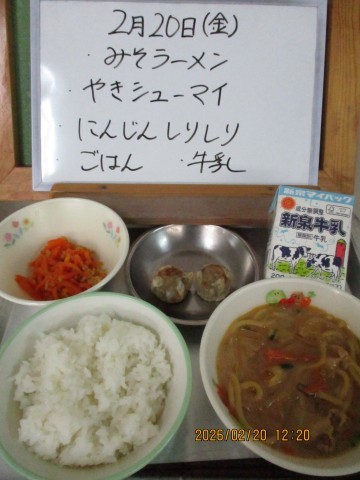 2月20日(金)
・みそラーメン
・やきシューマイ
・にんじんしりしり
・ごはん ・牛乳
新泉マイパック
成分無調整
新泉牛乳
種類別 牛乳
2026/02/20 12:20